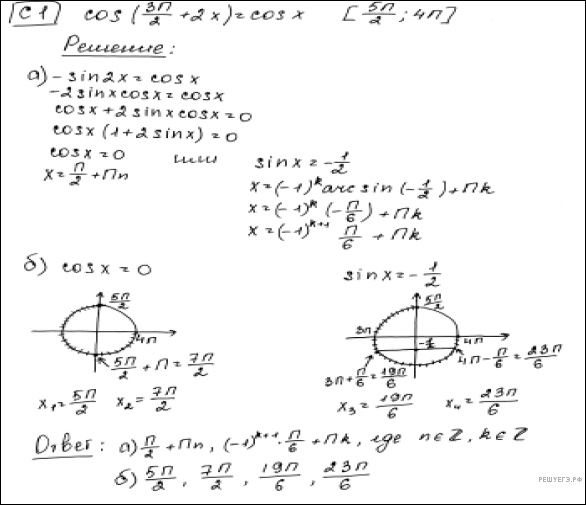 С1 cos(3π/2 + 2x) = cos x [5π/2; 4π]
Решение:
а) -sin2x = cosx
-2sinxcosx = cosx
cosx + 2sinxcosx = 0
cosx (1 + 2sinx) = 0
cosx = 0 или sinx = -1/2
x = π/2 + πn x = (-1)^k arcsin(-1/2) + πk
x = (-1)^k (-π/6) + πk
x = (-1)^(k+1) π/6 + πk
б) cosx = 0 sinx = -1/2
5π/2 5π/2
4π 3π -1/2 4π
5π/2 + π = 7π/2 3π + π/6 = 19π/6 4π - π/6 = 23π/6
x₁ = 5π/2 x₂ = 7π/2 x₃ = 19π/6 x₄ = 23π/6
Ответ: а) π/2 + πn, (-1)^(k+1) · π/6 + πk, где n∈Z, k∈Z
б) 5π/2, 7π/2, 19π/6, 23π/6
РЕШУЕГЭ.РФ